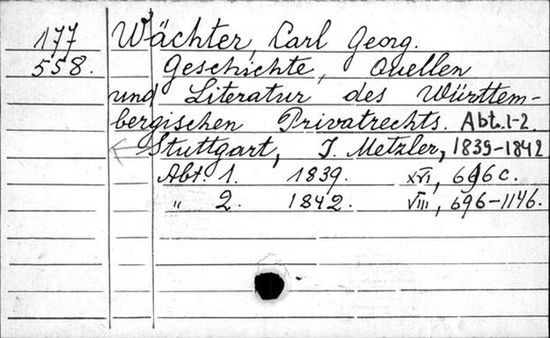 177 Wächter, Carl Georg.
558. Geschichte, Quellen
und Literatur des Württem-
bergischen Privatrechts. Abt. 1-2.
Stuttgart, J. Metzler, 1839-1842
Abt. 1. 1839. XVI, 696 c.
" 2. 1842. VIII, 696-1146.